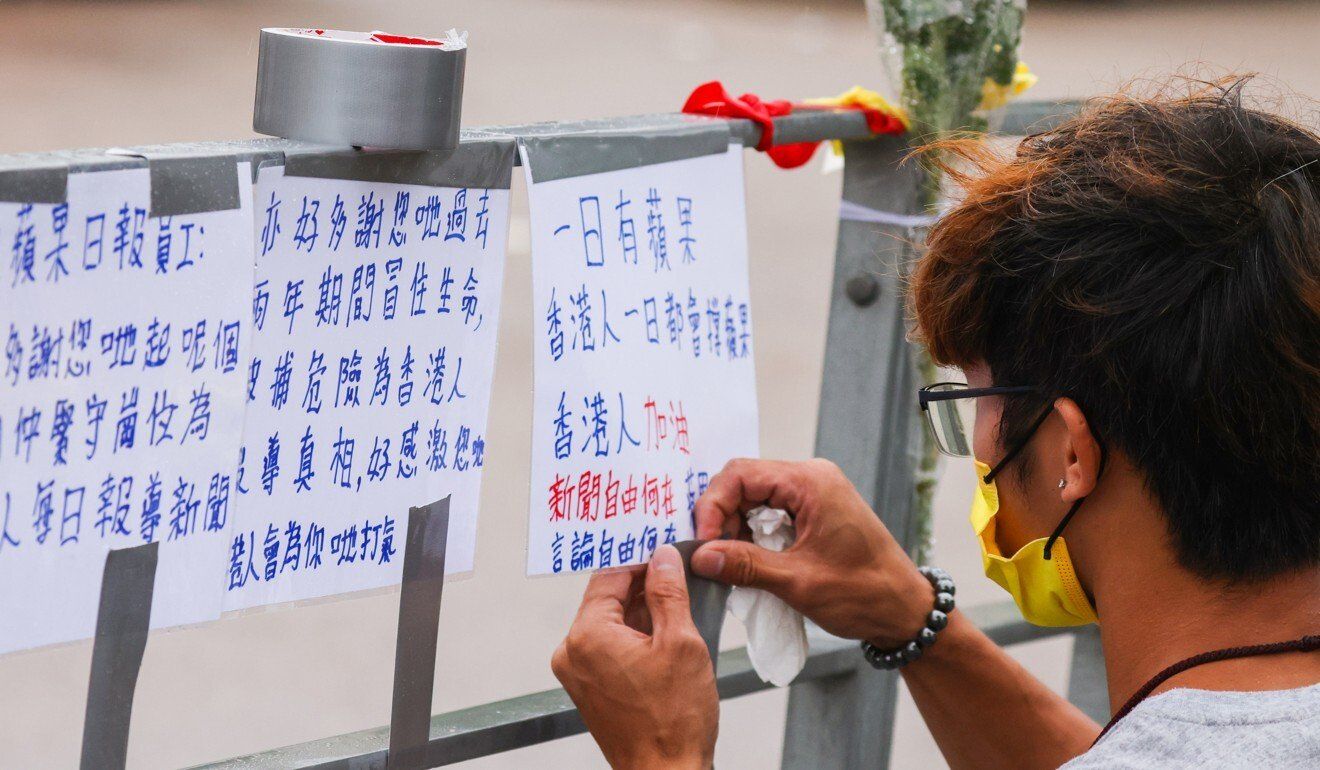 蘋果日報員工:
多謝您哋起呢個
仲緊守崗位為
人每日報導新聞
亦好多謝您哋過去
兩年期間冒住生命,
被捕危險為香港人
報導真相,好感激您哋
港人會為你哋打氣
一日有蘋果
香港人一日都會撐蘋果
香港人加油
新聞自由何在
言論自由何在